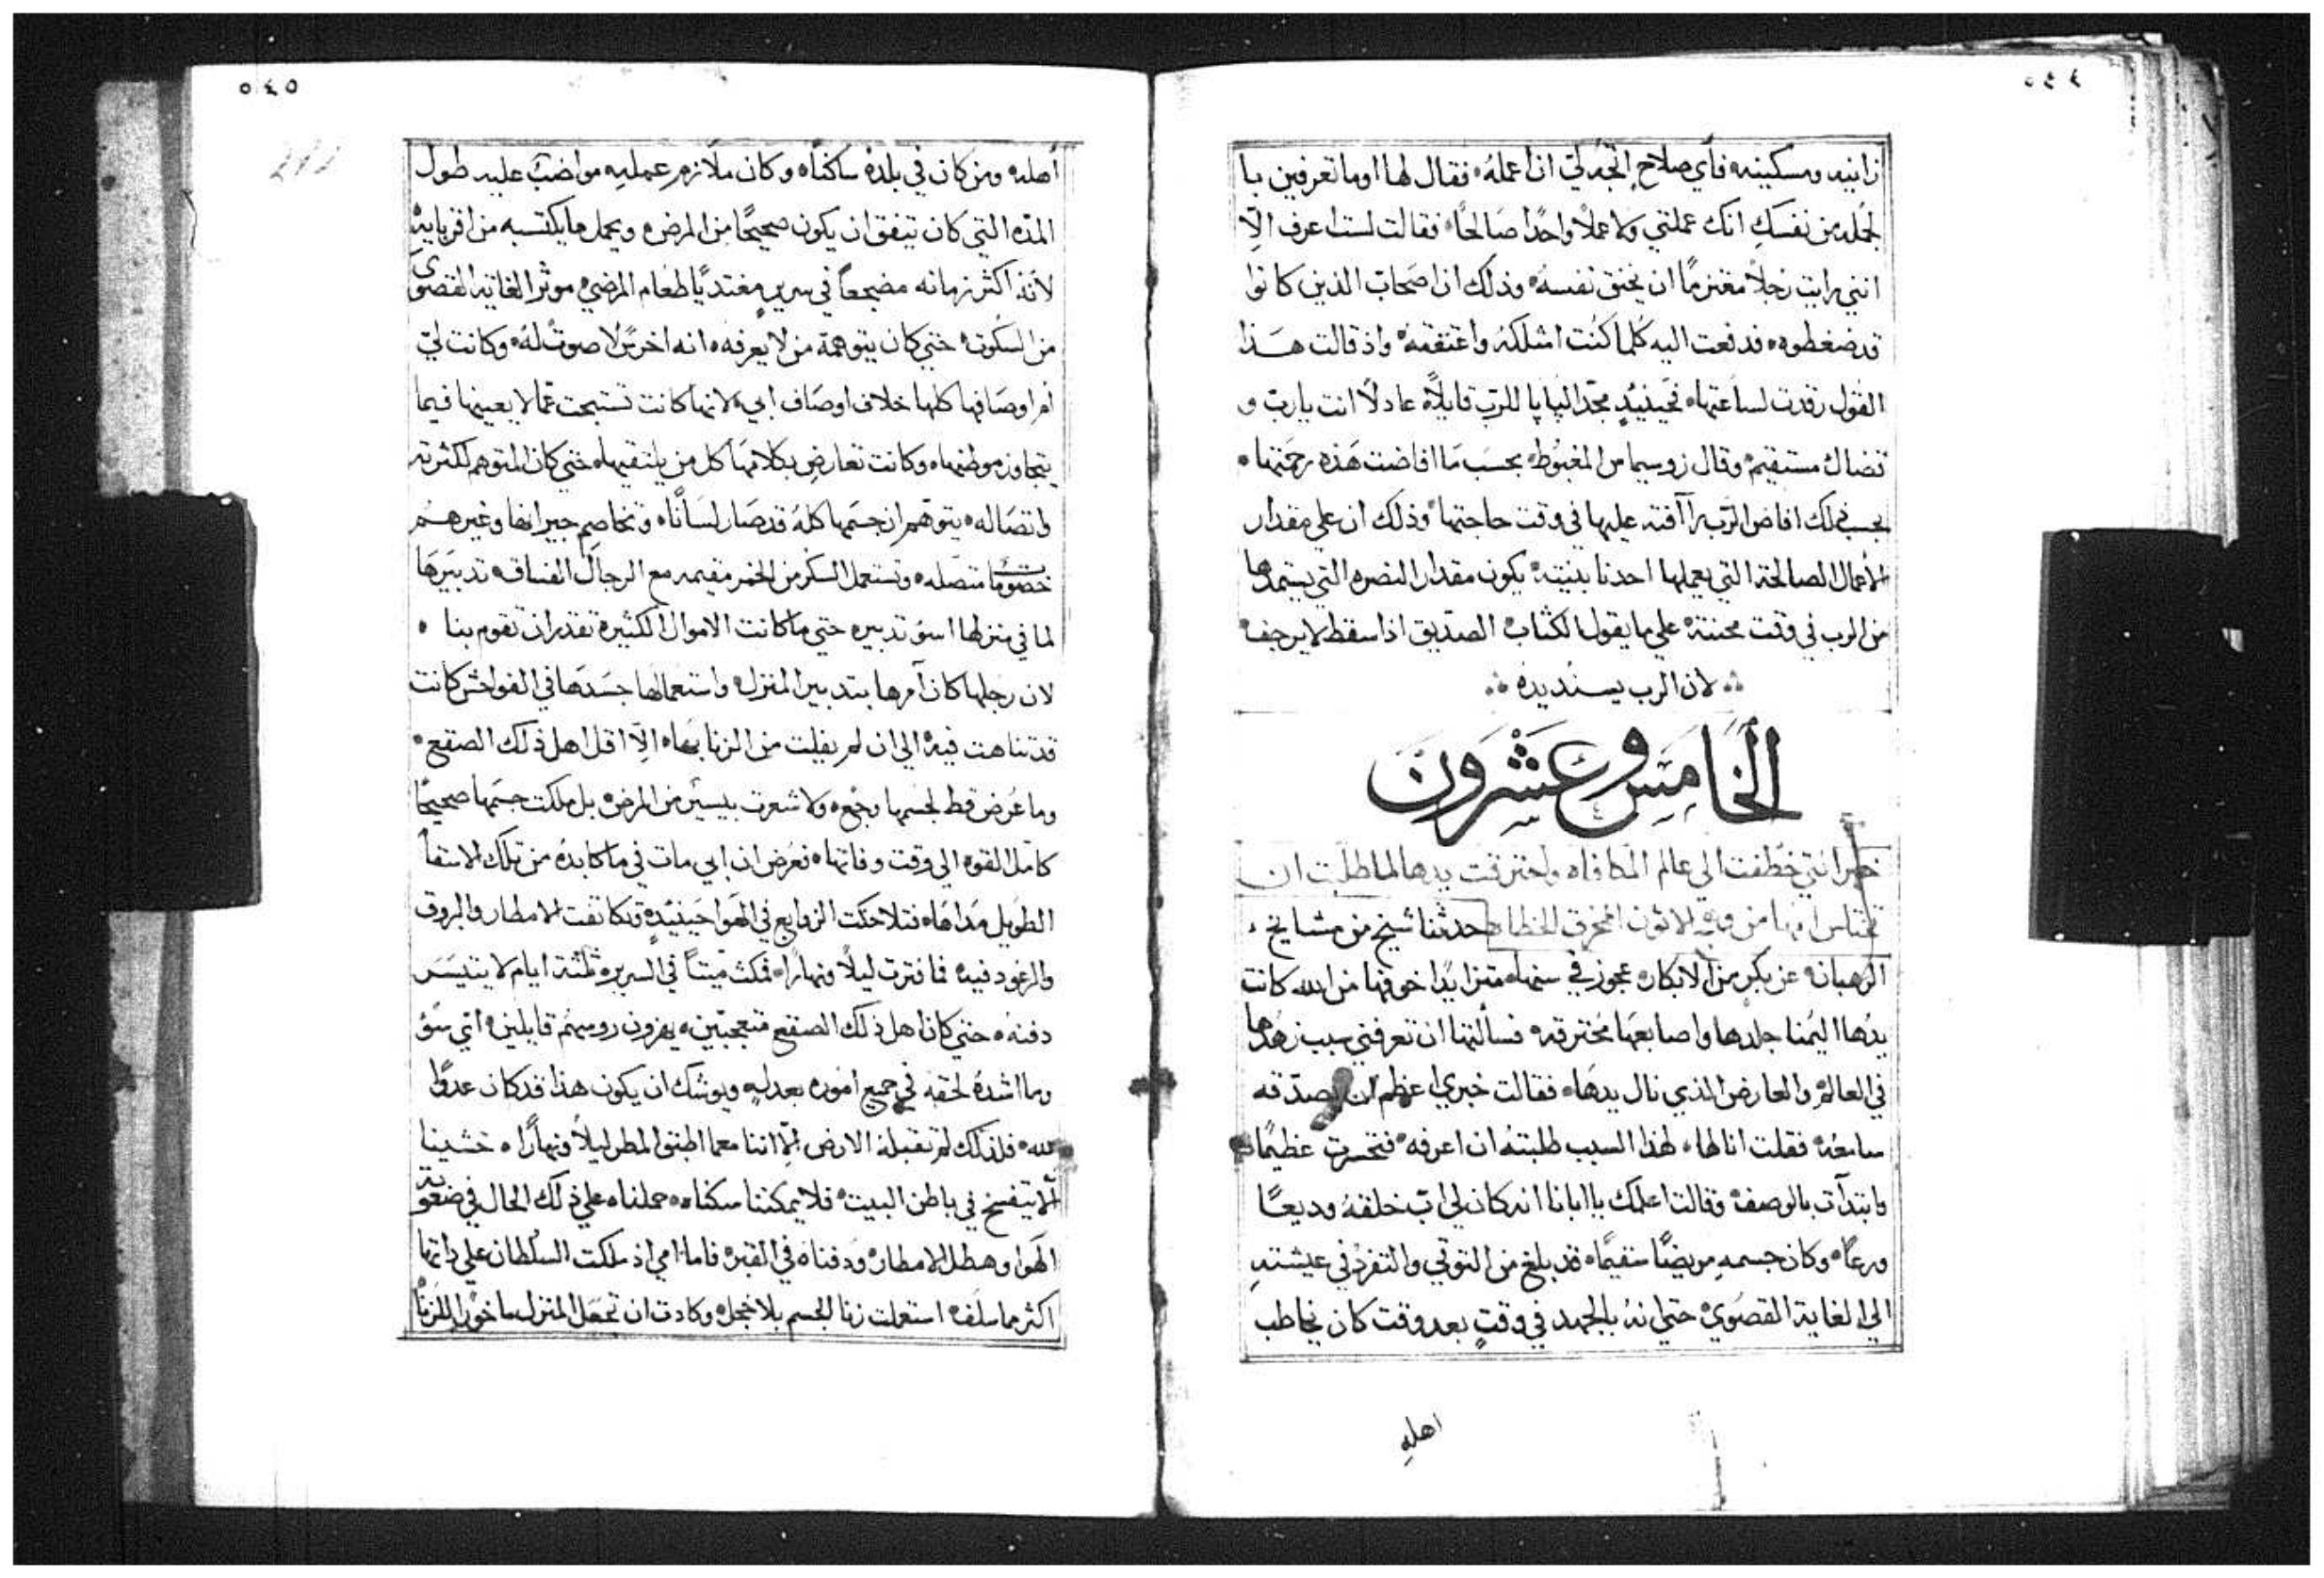 ٥٤٤
زانيه ومسكينه فاي صلاح اتجه لي انا اعمله فقال لها اوما تعرفين يا
لجمله من نفسك انك عملتي ولا عملاً واحدًا صالحًا فقالت لست اعرف الّا
انني رايت رجلاً مغترمًا ان يخنق نفسه وذلك ان اصحاب الذين كانوا
قد ضغطوه فدفعت اليه كلما كنت امتلكه واعتقته واذ قالت هذا
القول رقدت لساعتها فحينيدٍ مجّد البابا للرب قايلاً عادلاً انت يارب و
قضاك مستقيم وقال زوسيماس المغبوط بحسب ما افاضت هذه رحمتها
بحسب ذلك افاض الرب رآآفته عليها في وقت حاجتها وذلك ان على مقدار
الاعمال الصالحة التي يعملها احدنا بنيته يكون مقدار النصره التي يستمدها
من الرب في وقت محنته علي ما يقول الكتاب الصديق اذا سقط لا يرجف
لان الرب يسند يده
الخامس وعشرون
خبر التي خطفت الي عالم المكافاه واحترقت يدها لما طلبت ان
امها من الاتون المحرق الخطاه حدثنا شيخ من مشايخ
الرهبان عن بكرٍ من الابكار عجوز في سنها متزايدًا خوفها من الله كانت
يدها اليمنا جلدها واصابعها محترقه فسالتها ان تعرفني سبب زهدها
في العالم والعارض الذي نال يدها فقالت خبري اعظم ان يصدقه
سامعه فقلت انا لها لهذا السبب طلبته ان اعرفه فتحسرت عظيمًا
وابتدآت بالوصف وقالت اعلمك يا ابانا انه كان لي اب خلقه وديعًا
ورعًا وكان جسمه مريضًا سقيمًا قد بلغ من التوقي والتفرد في عيشته
الي الغاية القصوي حتي انه بالجهد في وقتٍ بعد وقت كان يخاطب
اهله
٥٤٥
أهله ومن كان في بلده ساكنًا وكان ملازم عمليه مواضب عليه طول
المده التي كان تيفق ان يكون صحيحًا من المرض ويحمل ما يكتسبه من اقربايه
لانه اكثر زمانه مضجعًا في سريرٍ مغتديًا طعام المرضي موثرا الغاية القصوى
من السكوت حتي كان يتوهمه من لا يعرفه انه اخرس لا صوت له وكانت لي
ام اوصافها كلها خلاف اوصاف ابي لانها كانت تستبحت عما لا يعينها فيما
يتجاوز موطنها وكانت تعارض بكلامها كل من يلتقيها حتي كان المتوهم لكثرته
واتصاله يتوهم ان جسمها كله قد صار لسانًا وتخاصم جيرانها وغيرهم
خصومات متصله وتستعمل السكر من الخمر مقيمه مع الرجال الفساق تدبيرها
لما في منزلها اسوٌ تدبير حتي ما كانت الاموال الكثيرة تقدر ان تقوم بنا
لان رجلها كان آمرها بتدبير المنزل واستعمالها جسدها في الفواحش كانت
قد تناهت فيه الي ان لم يفلت من الزنا بها الّا اقل اهل ذلك الصقع
وما عرض قط لجسمها وجع ولا شعرت بيسير من المرض بل ملكت جسمها صحيحًا
كامل القوه الي وقت وفاتها فعرض ان ابي مات في ما كابده من تلك الاسقام
الطويل مداها فتلاحكت الزوابع في الهوا حينيدٍ وتكاتفت الامطار والبروق
والرعود فيه فما فترت ليلاً ونهارًا فمكث ميتًا في السرير ثلثة ايام لا يتيسر
دفنه حتي كان اهل ذلك الصقع متعجبين يهزون روسهم قايلين اي سوٌ
وما اشده لحقه في جميع اموره بعدله ويوشك ان يكون هذا قد كان عدوًا
لله فلذلك لم تقبله الارض الّا اننا معما اطبق المطر ليلاً ونهارًا خشينا
ألا يتفسخ في باطن البيت فلا يمكننا سكناه حملناه علي ذلك الحال في صعوبة
الهوا وهطل الامطار ودفناه في القبر فاما امي اذ ملكت السلطان علي ذاتها
اكثر مما سلف استعلت زنا الجسم بلا خجل وكادت ان تجعل المنزل ماخورًا للزنا